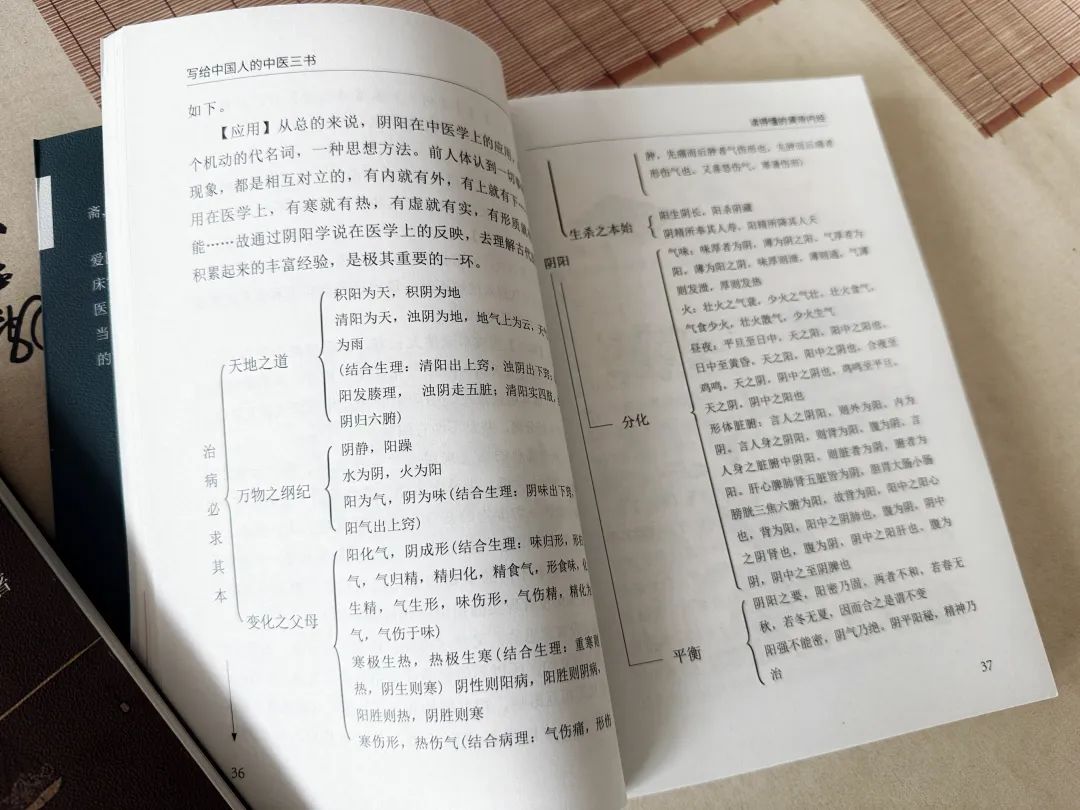 写给中国人的中医三书
如下。
【应用】从总的来说，阴阳在中医学上的应用，
个机动的代名词，一种思想方法。前人体认到一切事
现象，都是相互对立的，有内就有外，有上就有下
用在医学上，有寒就有热，有虚就有实，有形质就
能……故通过阴阳学说在医学上的反映，去理解古代
积累起来的丰富经验，是极其重要的一环。
治病必求其本
天地之道
积阳为天，积阴为地
清阳为天，浊阴为地，地气上为云，天
为雨
(结合生理：清阳出上窍，浊阴出下窍；
阳发腠理，　浊阴走五脏；清阳实四肢，
阴归六腑)
万物之纲纪
阴静，阳躁
水为阴，火为阳
阳为气，阴为味(结合生理：阴味出下窍，
阳气出上窍)
变化之父母
阳化气，阴成形(结合生理：味归形，形
气，气归精，精归化，精食气，形食味，化
生精，气生形，味伤形，气伤精，精化为
气，气伤于味)
寒极生热，热极生寒(结合生理：重寒则
热，阴生则寒) 阴性则阳病，阳胜则阴病，
阳胜则热，阴胜则寒
寒伤形，热伤气(结合病理：气伤痛，形伤
36
读得懂的黄帝内经
肿，先痛而后肿者气伤形也，先肿而后痛者
形伤气也。又暴怒伤气，寒暑伤形)
阴阳
生杀之本始
阳生阴长，阳杀阴藏
阴精所奉其人寿，阳精所降其人夭
分化
气味：味厚者为阴，薄为阴之阳，气厚者为
阳，薄为阳之阴，味厚则泄，薄则通，气薄
则发泄，厚则发热
火：壮火之气衰，少火之气壮，壮火食气，
气食少火，壮火散气，少火生气
昼夜：平旦至日中，天之阳，阳中之阳也，
日中至黄昏，天之阳，阳中之阴也，合夜至
鸡鸣，天之阴，阴中之阴也，鸡鸣至平旦，
天之阴，阴中之阳也
形体脏腑：言人之阴阳，则外为阳，内为
阴。言人身之阴阳，则背为阳，腹为阴，言
人身之脏腑中阴阳，则脏者为阴，腑者为
阳。肝心脾肺肾五脏皆为阴，胆胃大肠小肠
膀胱三焦六腑为阳，故背为阳，阳中之阳心
也，背为阳，阳中之阴肺也，腹为阴，阴中
之阴肾也，腹为阴，阴中之阳肝也，腹为
阴，阴中之至阴脾也
平衡
阴阳之要，阳密乃固，两者不和，若春无
秋，若冬无夏，因而合之是谓不变
阳强不能密，阴气乃绝。阴平阳秘，精神乃
治
37
斋，
床
医
当
的